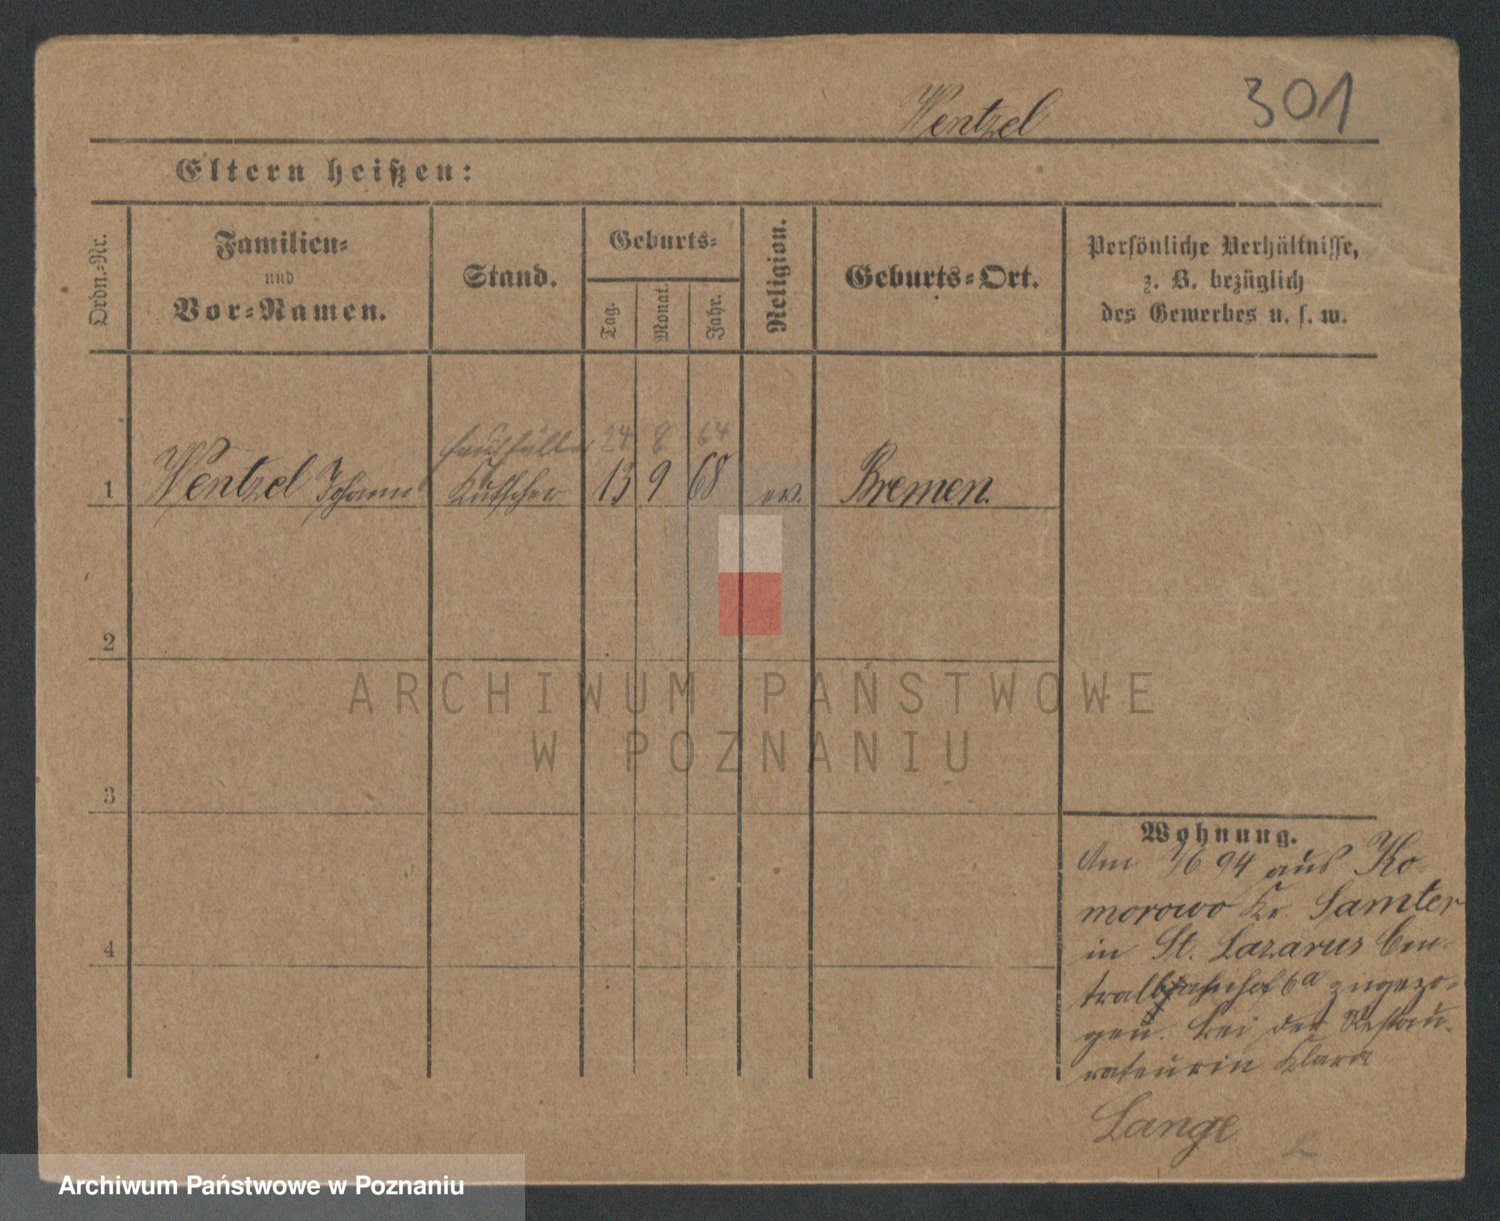 Wentzel
301
Eltern heißen:
Ordn.-Nr.
Familien-
und
Vor-Namen.
Stand.
Geburts-
Tag.
Monat.
Jahr.
Religion.
Geburts-Ort.
Persönliche Verhältnisse,
z. B. bezüglich
des Gewerbes u. s. w.
24 8 64
1 Wentzel Johann Kutscher 13 9 68 ev. Bremen.
2
3
4
Wohnung.
Am 1/6 94 aus Ko-
morowo Kr. Samter
in St. Lazarus Cen-
tralbahnhof 6a zugezo-
gen. bei der Restau-
rateurin Klara
Lange
ARCHIWUM PAŃSTWOWE
W POZNANIU
Archiwum Państwowe w Poznaniu